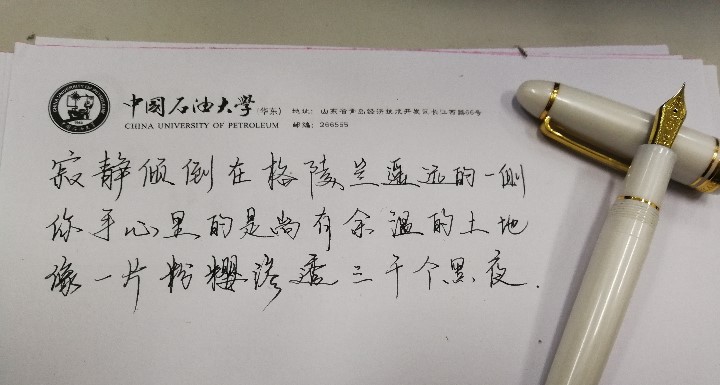 中国石油大学(华东) 地址：山东省青岛经济技术开发区长江西路66号
CHINA UNIVERSITY OF PETROLEUM 邮编：266555
寂静倾倒在格陵兰遥远的一侧
你手心里的是尚有余温的土地
像一片粉樱渗透三千个黑夜.